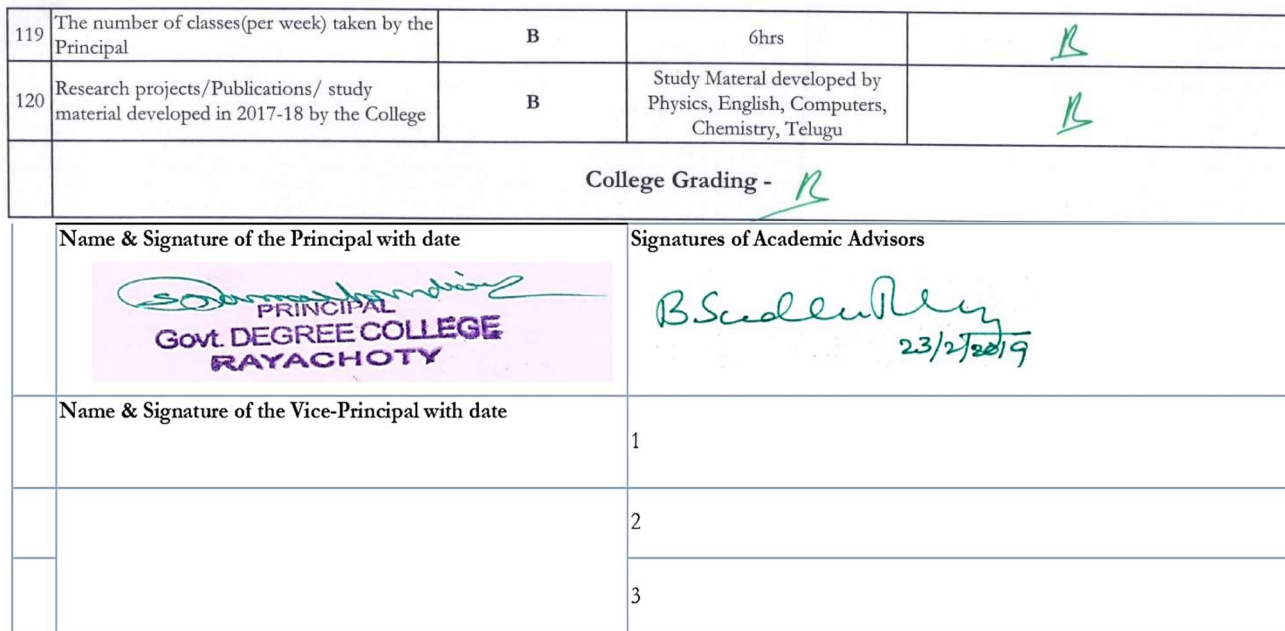 119 The number of classes(per week) taken by the Principal B 6hrs B
120 Research projects/Publications/ study material developed in 2017-18 by the College B Study Materal developed by Physics, English, Computers, Chemistry, Telugu B
College Grading - B
Name & Signature of the Principal with date
Signatures of Academic Advisors
PRINCIPAL
Govt. DEGREE COLLEGE
RAYACHOTY
23/2/2019
Name & Signature of the Vice-Principal with date
1
2
3